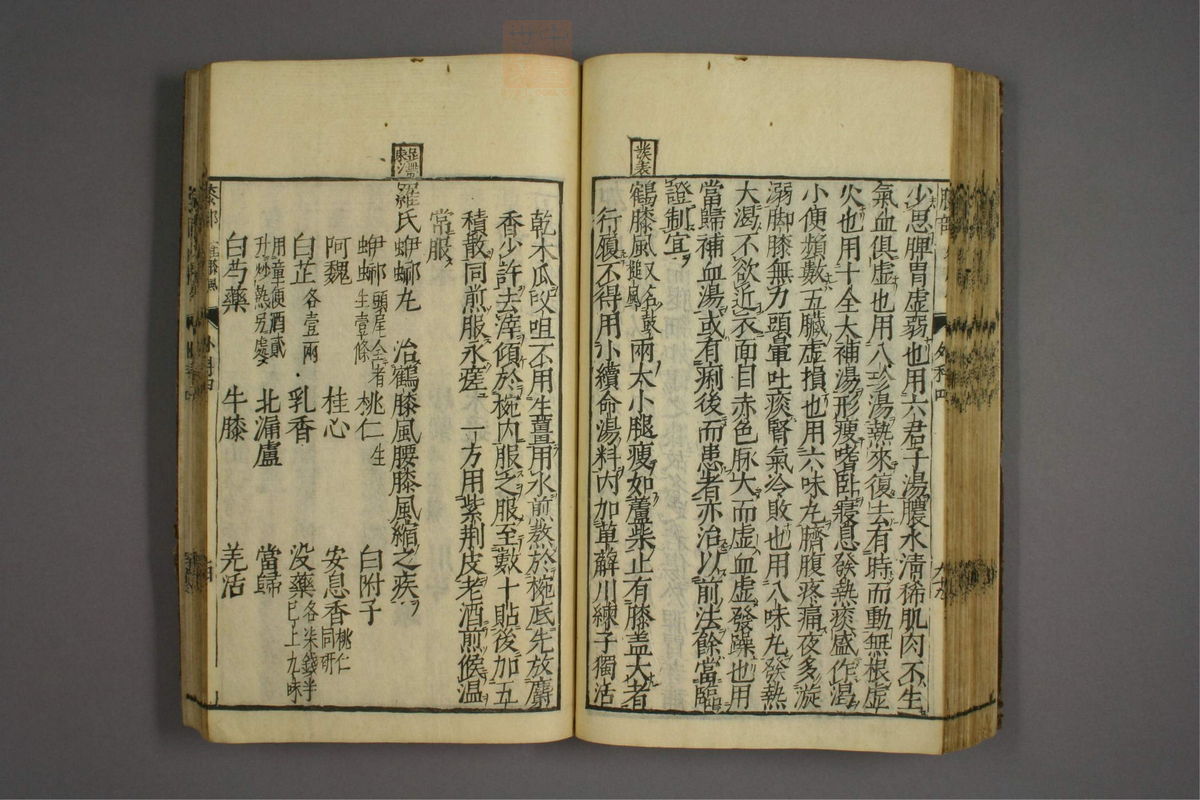 少思脾胃虛弱也用六君子湯膿水清稀肌肉不生
氣血俱虛也用八珍湯熱來復去有時而動無根虛
火也用十全大補湯形瘦嗜臥寢息發熱痰盛作渴
小便頻數五臟虛損也用六味丸臍腹疼痛夜多漩
溺脚膝無力頭暈吐痰腎氣冷敗也用八味丸發熱
大渴不欲近衣面目赤色脉大而虛血虛發躁也用
當歸補血湯或有痢後而患者亦治以前法餘當臨
證制宜
鶴膝風又名鼓槌風兩大小腿瘦如蘆柴止有膝盖大者
行履不得用小續命湯料内加萆薢川練子獨活
乾木瓜㕮咀不用生薑用水煎熬於椀底先放麝
香少許去滓傾於椀内服之服至數十貼後加五
積散同煎服永瘥一方用紫荆皮老酒煎候温
常服
羅氏蛜蝛丸 治鶴膝風腰膝風縮之疾
蛜蝛頭尾全者生壹條 桃仁生 白附子
阿魏 桂心 安息香桃仁同研
白芷各壹兩 乳香 没藥各柒錢半已上九味
用童便酒貳升炒熟另處 北漏盧 當歸
白芍藥 牛膝 羌活